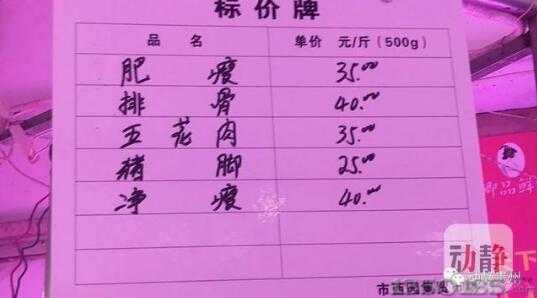 标价牌
品 名 单价 元/斤（500g）
肥 瘦 35.00
排 骨 40.00
五 花 肉 35.00
猪 脚 25.00
净 瘦 40.00
动静
品鲜
下